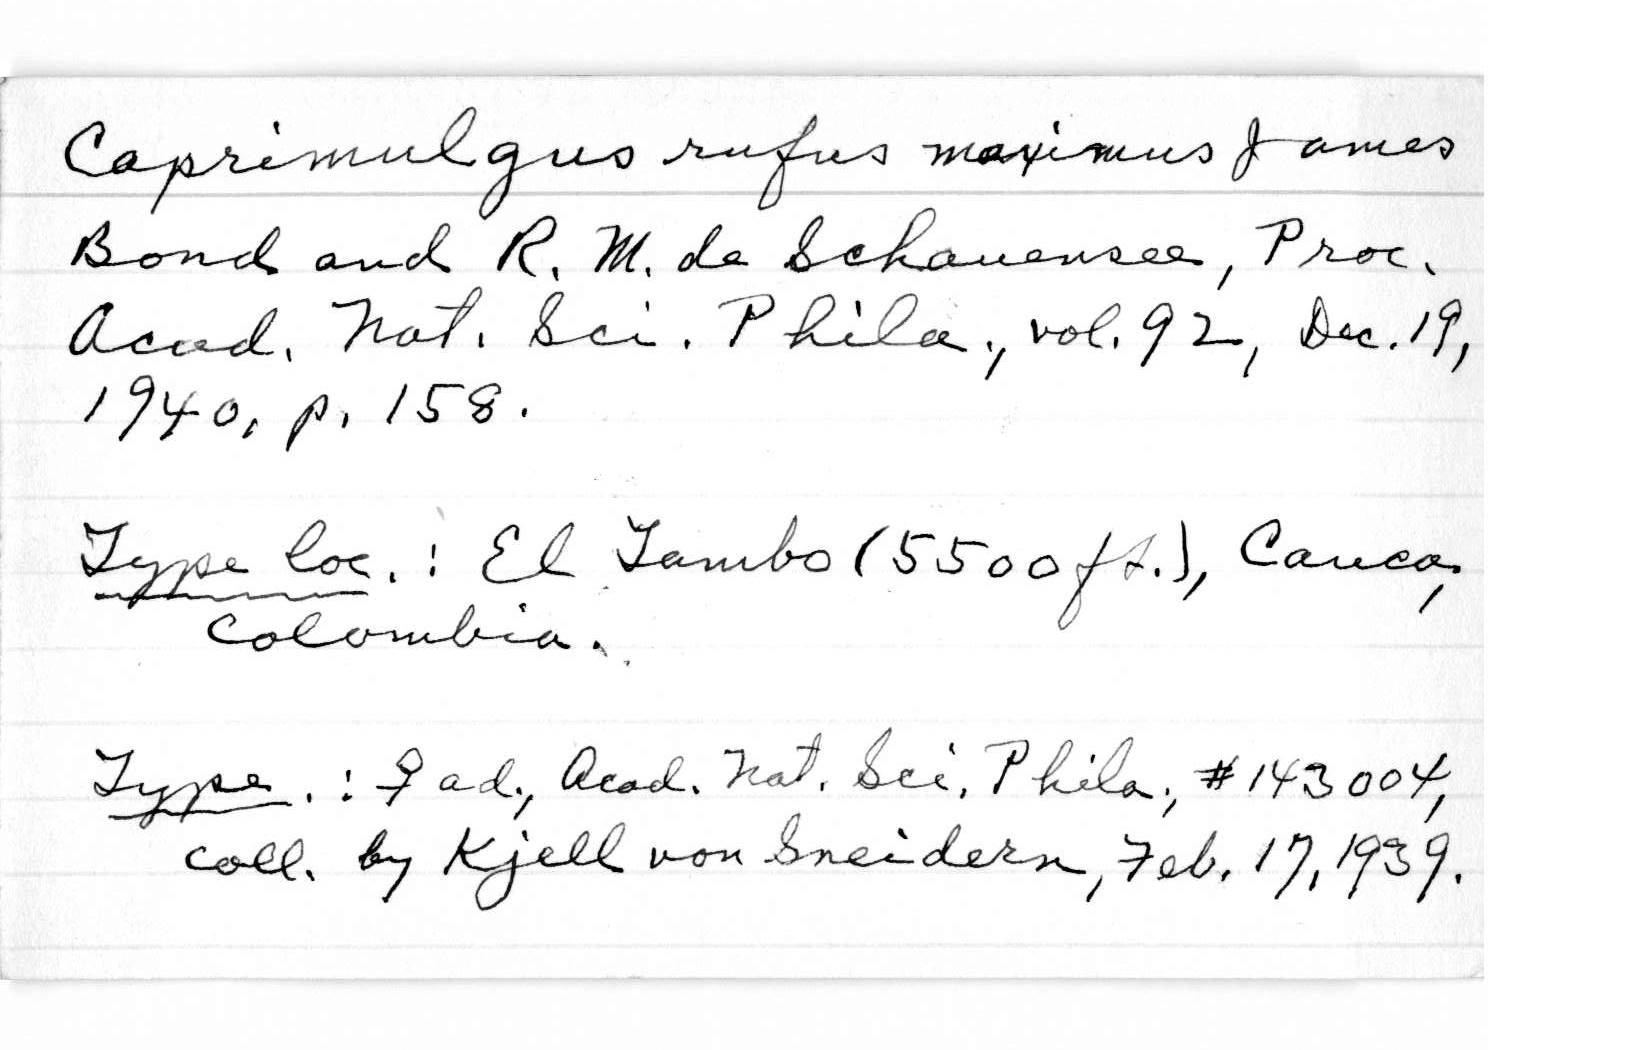 Caprimulgus rufus maximus James
Bond and R. M. de Schauensee, Proc.
Acad. Nat. Sci. Phila., vol. 92, Dec. 19,
1940, p. 158.
Type loc. : El Tambo (5500 ft.), Cauca,
Colombia.
Type. : ♀ ad., Acad. Nat. Sci. Phila., #143004,
coll. by Kjell von Sneidern, Feb. 17, 1939.